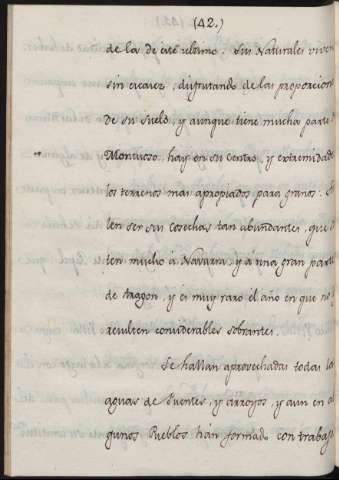 (42.)
de la de este ultimo. Sus Naturales viven
sin escasez, disfrutando de las proporcione
de su suelo, y aunque tiene mucha parte
Montuoso, hay en su centro, y extremidade
los terrenos mas apropiados para granos.
len ser sus cosechas tan abundantes, que
ten mucho á Navarra, y a una gran parte
de Aragon, y es muy raro el año en que no
resulten considerables sobrantes.
Se hallan aprovechadas todas las
aguas de Fuentes, y arroyos, y aun en al
gunos Pueblos hán formado con trabajo